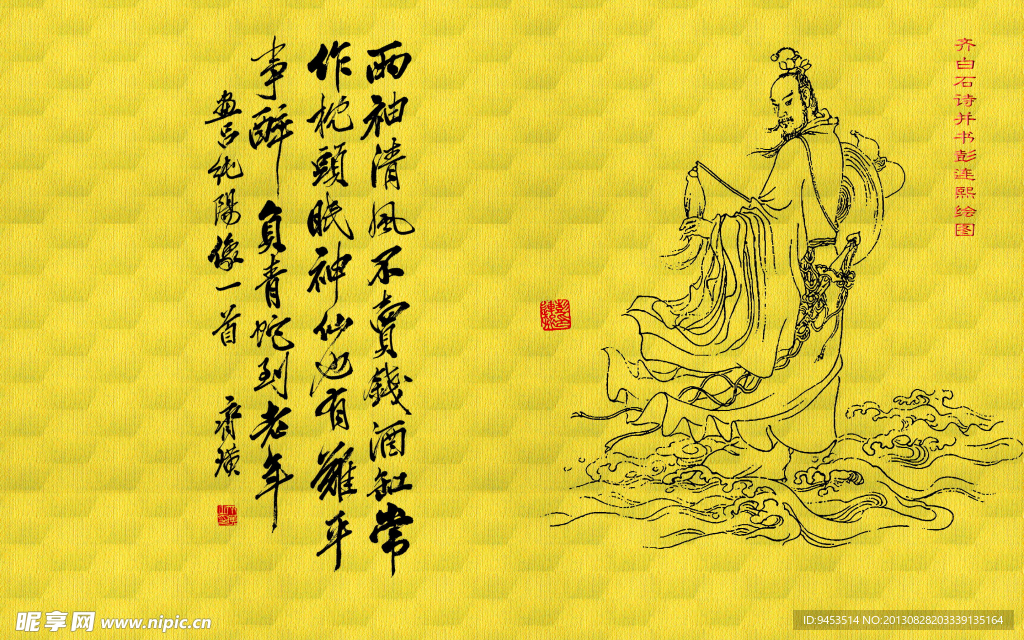 齐白石诗并书彭连熙绘图
兩袖清風不賣錢酒缸常
作枕頭眠神仙也有難平
事醉負青蛇到老年
畫吕純陽像一首 齊璜
昵享网 www.nipic.cn
ID:9453514 NO:20130828203339135164